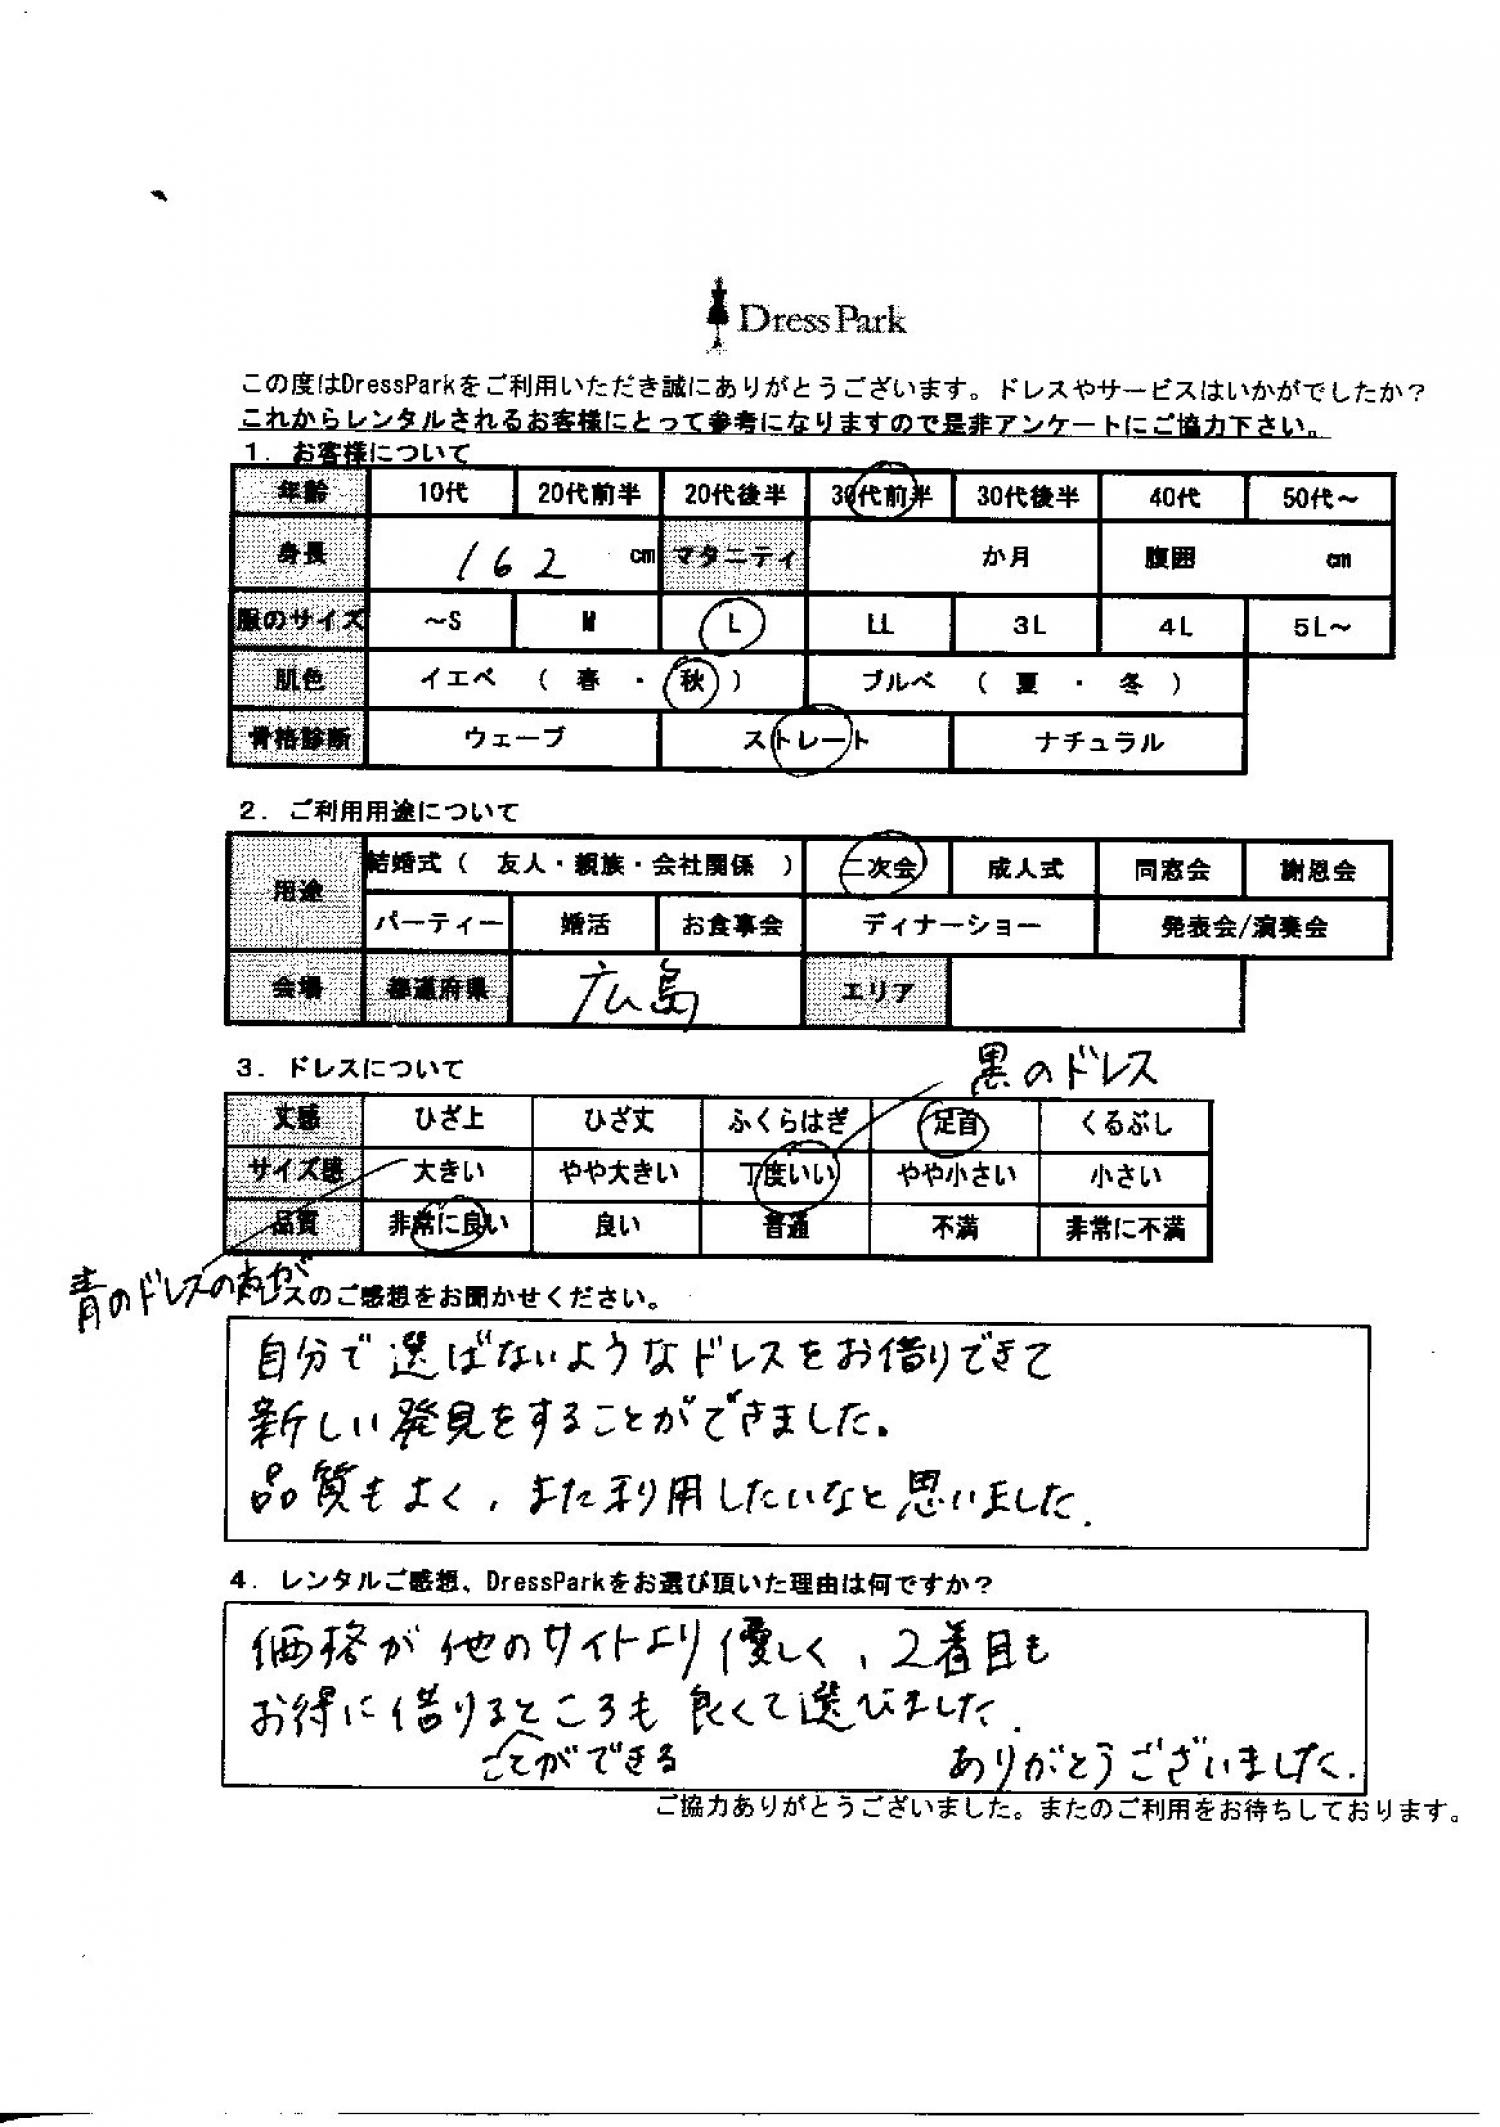 DressPark
この度はDressParkをご利用いただき誠にありがとうございます。ドレスやサービスはいかがでしたか？
これからレンタルされるお客様にとって参考になりますので是非アンケートにご協力下さい。
1．お客様について
年齢 10代 20代前半 20代後半 30代前半 30代後半 40代 50代～
身長 162 cm マタニティ か月 腹囲 cm
服のサイズ ～S M L LL 3L 4L 5L～
肌色 イエベ （ 春 ・ 秋 ） ブルベ （ 夏 ・ 冬 ）
骨格診断 ウェーブ ストレート ナチュラル
2．ご利用用途について
用途 結婚式（ 友人・親族・会社関係 ） 二次会 成人式 同窓会 謝恩会
パーティー 婚活 お食事会 ディナーショー 発表会/演奏会
会場 都道府県 広島 エリア
3．ドレスについて
黒のドレス
丈感 ひざ上 ひざ丈 ふくらはぎ 足首 くるぶし
サイズ感 大きい やや大きい 丁度いい やや小さい 小さい
品質 非常に良い 良い 普通 不満 非常に不満
青のドレスの
ドレスのご感想をお聞かせください。
自分で選ばないようなドレスをお借りできて
新しい発見をすることができました。
品質もよく、また利用したいなと思いました.
4．レンタルご感想、DressParkをお選び頂いた理由は何ですか？
価格が他のサイトより優しく、2着目も
お得に借りるところも良くて選びました.
ことができる
ありがとうございました.
ご協力ありがとうございました。またのご利用をお待ちしております。